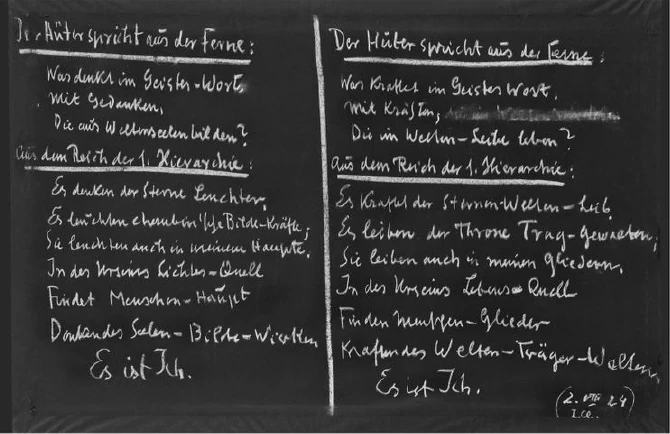 Der Hüter spricht aus der Ferne:
Was denkt im Geister-Wort,
Mit Gedanken,
Die aus Weltenseelen bilden?
Aus dem Reich der 1. Hierarchie:
Es denken der Sterne Leuchter,
Es leuchten cherubin'sche Bilde-Kräfte;
Sie leuchten auch in meinem Haupte.
In des Urseins Lichtes-Quell
Findet Menschen-Haupt
Denkendes Seelen-Bilde-Wirken
Es ist Ich.
Der Hüter spricht aus der Ferne:
Was kraftet im Geister Wort,
Mit Kräften,
Die in Welten-Leibe leben?
Aus dem Reich der 1. Hierarchie:
Es kraftet der Sternen-Welten-Leib,
Es leiben der Throne Trag-Gewalten,
Sie leiben auch in meinen Gliedern.
In des Urseins Lebens-Quell
Finden Menschen-Glieder
Kraftendes Welten-Träger-Walten,
Es ist Ich.
(2. VIII 24)